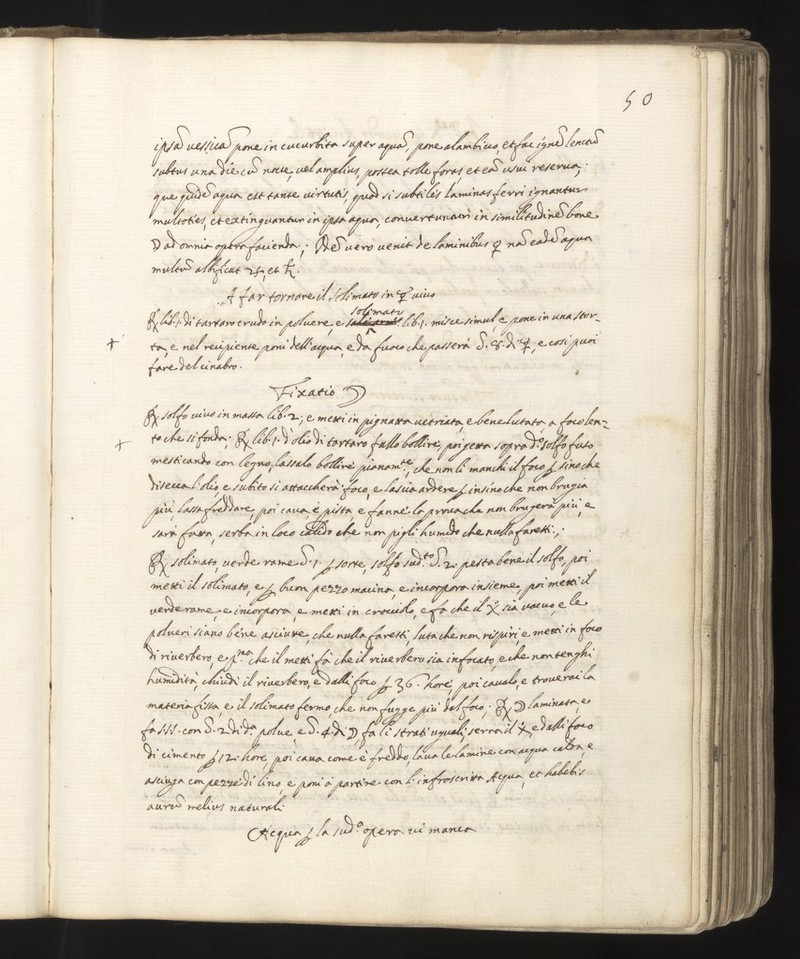 50
ipsā vessicā pone in cucurbita super aquā, pone alambico, et fac ignē lentū
subtus una die cū nocte, vel amplius, postea tolle foras et eā usui reserva;
que quidē aqua est tante virtutis, quod si subtiles laminas ferri igniantur
multoties, et extinguantur in ipsa aqua, convertuntur in similitudinē bone
☽ ad omnia opera facienda; Idē vero venit de laminibus ♀ nā eadē aqua
multū albificat ♃ et ♄.
A far tornare il solimato in ☿ vivo
℞ lib. 1. di tartaro crudo in polvere, e solimato lib. 1. misce simul, e pone in una stor-
ta, e nel recipiente poni dell'acqua, e da fuoco che passerà ℥. 8. di ☿, e così puoi
fare del cinabro.
Fixatio ☽
℞ solfo vivo in massa lib. 2; e metti in pignatta vetriata, e bene lutata a foco len=
to che si fonda; ℞ lib. 1. d'olio di tartaro fallo bollire, poi getta sopra d.º solfo fuso
mesticando con legno, lassalo bollire pianam.te, che non li manchi il foco ꝑ sino che
disecca l'olio e subito si attaccherà foco, e lascia ardere ꝑ insino che non brugia
più, lassa freddare, poi cava, e pista e fanne la prova che non brugerà più, e
sarà fatta, serba in loco calido che non pigli humido che nulla faresti;
℞ solimato, verde rame ℥. 1. ꝑ sorte, solfo sud.to ℥. 2. pesta bene il solfo, poi
metti il solimato, e ꝑ buon pezzo macina, e incorpora insieme, poi metti il
verderame, e incorpora, e metti in crociolo, e fa che il sia vacuo, e le
polveri siano bene asciutte che nulla faresti, luta che non rispiri, e metti in foco
di riverbero, e p.ma che il metti fà che il riverbero sia infocato, e che non tenghi
humidità, chiudi il riverbero, e dalli foco ꝑ 36. hore, poi cavalo, e troverai la
materia fissa, e il solimato fermo che non fugge più dal foco; ℞ ☽ laminata, e
fa SSS. con ℥. 2. di d.ª polve e ℥. 4. di ☽ fà li strati uguali, serra il e dalli foco
di cimento ꝑ 12. hore, poi cava come è freddo, lava le lamine con acqua calda, e
asciuga con pezze di lino, e poni à partire con l'infrascritta Acqua, et habebis
aurū melius naturali.
Acqua ꝑ la sud.ª opera vi manca